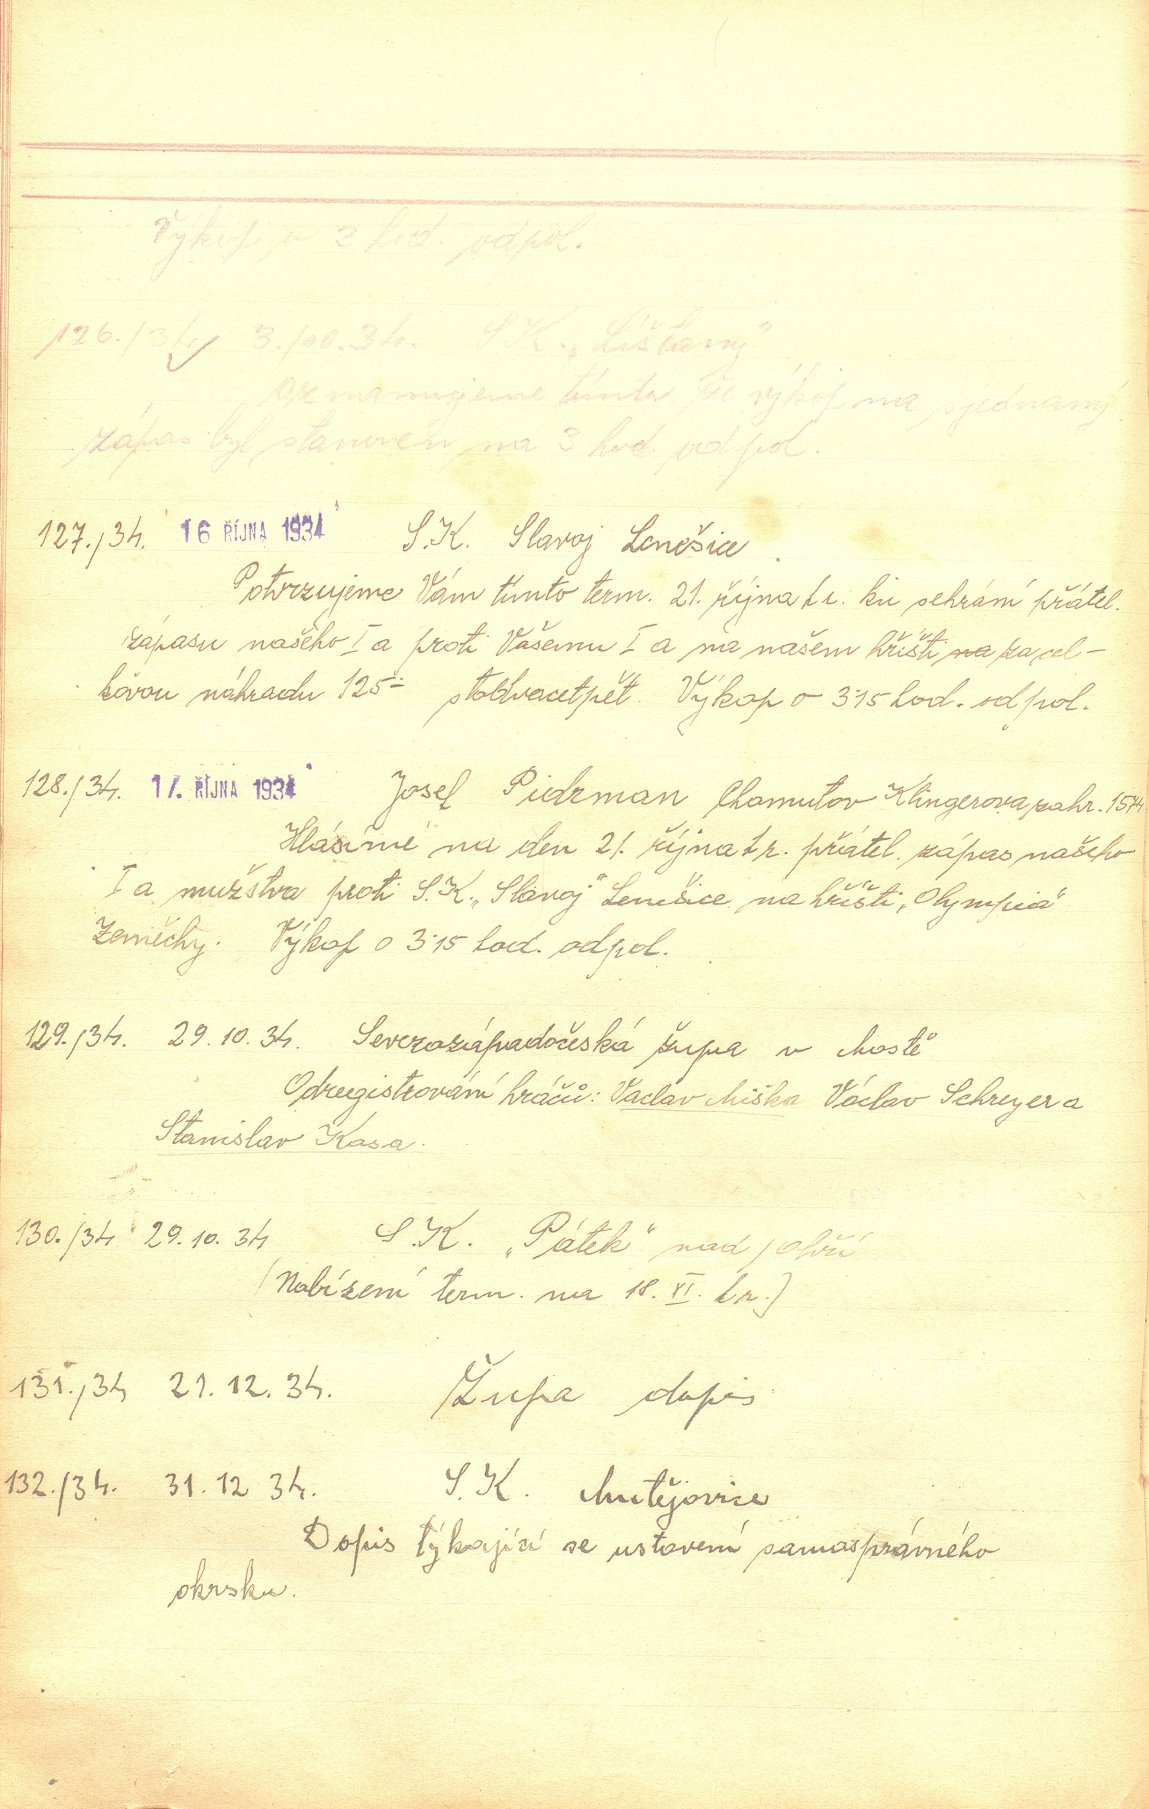 Výkop o 3 hod. odpol.
126./34. 3./10.34. S.K. „Líšťany"
Oznamujeme tímto, že výkop na sjednaný
zápas byl stanoven na 3 hod. odpol.
127./34. 16 ŘÍJNA 1934 S.K. Slavoj Lenešice
Potvrzujeme Vám tímto term. 21. října t.r. ku sehrání přátel.
zápasu našeho I a proti Vašemu I a na našem hřišti na za cel-
kovou náhradu 125- stodvacetpět. Výkop o 3·15 hod. odpol.
128./34. 17. ŘÍJNA 1934 Josef Pidrman Chomutov Klingerova zahr. 1574
Hlásíme na den 21. října t.r. přátel. zápas našeho
I a mužstva proti S.K. „Slavoj" Lenešice na hřišti „Olympia"
Zeměchy. Výkop o 3·15 hod. odpol.
129./34. 29.10.34. Severozápadočeská župa v Mostě
Odregistrování hráčů: Václav Miška Václav Schreyer a
Stanislav Kasa.
130./34 29.10.34 S.K. „Pátek" nad Ohří
(Nabízení term. na 18. XI. t.r.)
131./34 21.12.34. Župa dopis
132./34. 31.12 34. S.K. Mutějovice
Dopis týkající se ustavení samosprávného
okrsku.